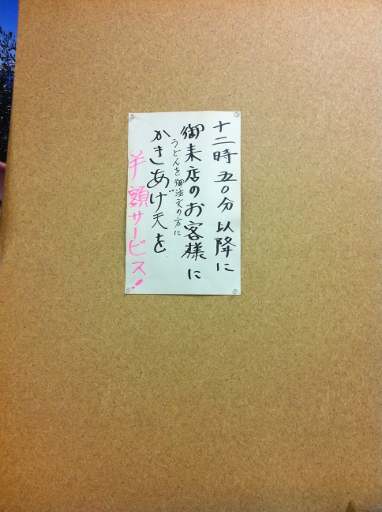 十二時五〇分以降に
御来店のお客様に
うどんを御注文の方に
かきあげ天を
半額サービス!